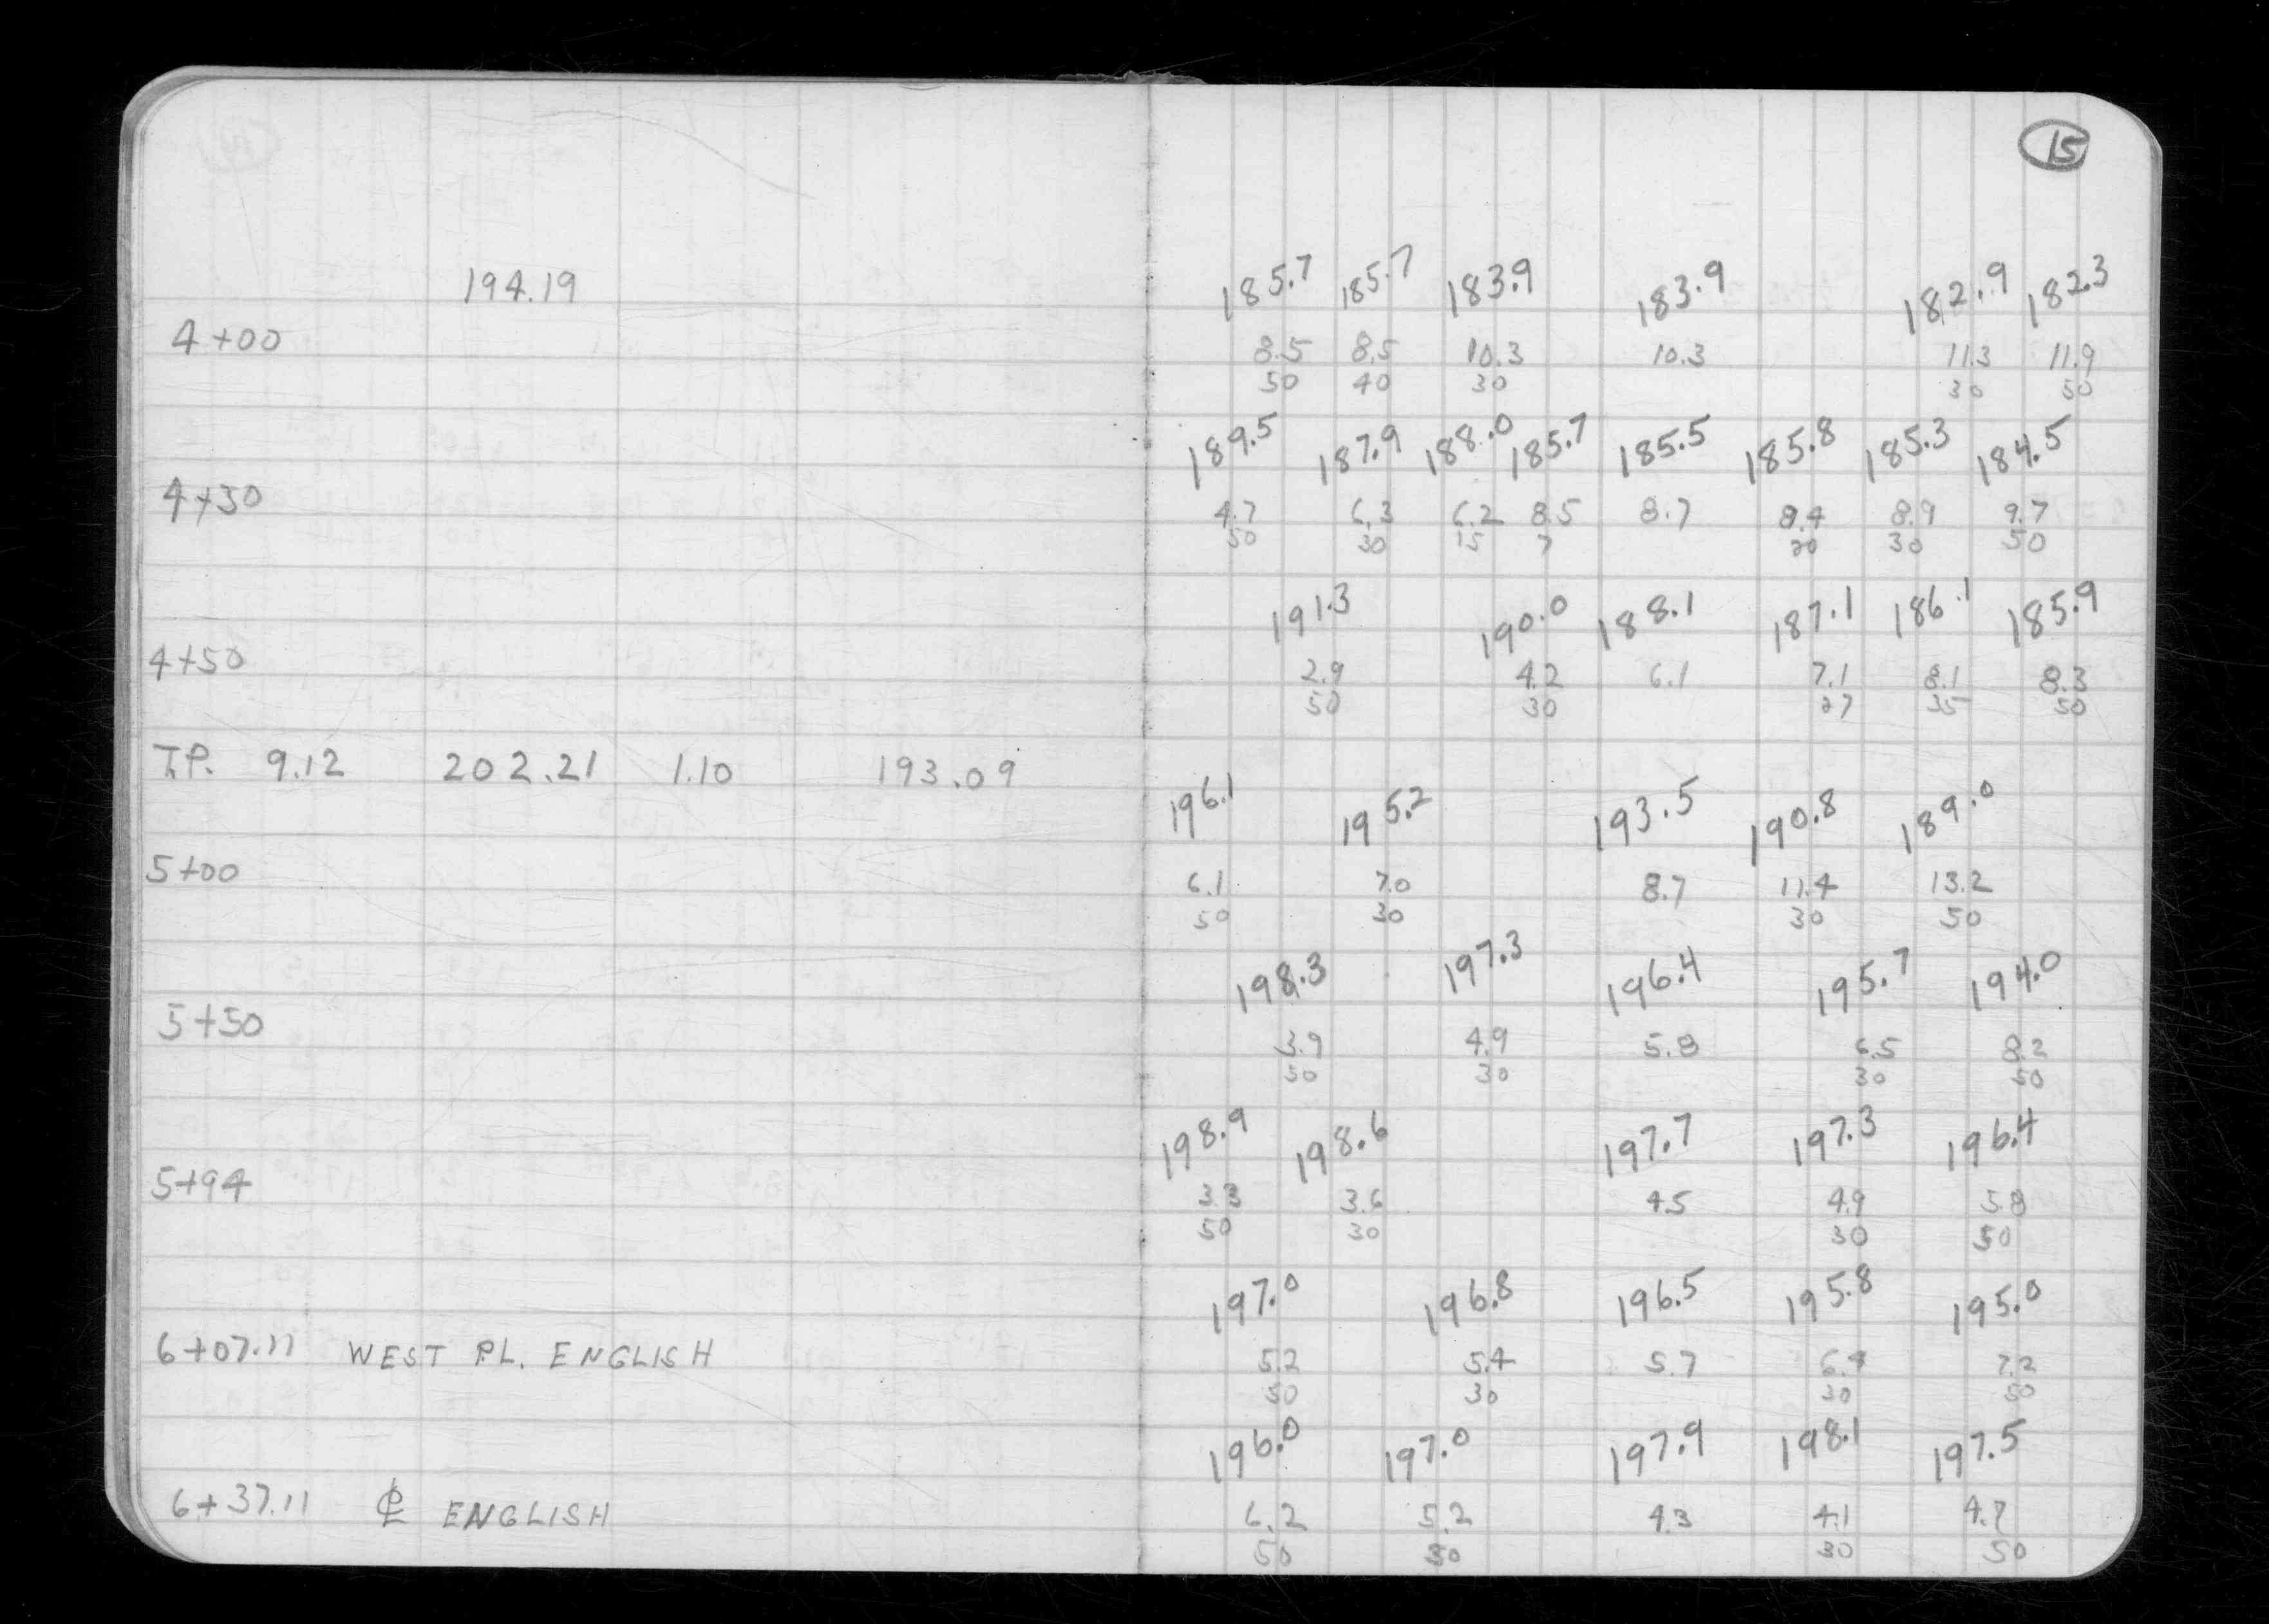 15
194.19 185.7 185.7 183.9 183.9 182.9 182.3
4+00 8.5 8.5 10.3 10.3 11.3 11.9
50 40 30 30 50
189.5 187.9 188.0 185.7 185.5 185.8 185.3 184.5
4+30 4.7 6.3 6.2 8.5 8.7 8.4 8.9 9.7
50 30 15 7 20 30 50
191.3 190.0 188.1 187.1 186.1 185.9
4+50 2.9 4.2 6.1 7.1 8.1 8.3
50 30 27 35 50
T.P. 9.12 202.21 1.10 193.09
196.1 195.2 193.5 190.8 189.0
5+00 6.1 7.0 8.7 11.4 13.2
50 30 30 50
198.3 197.3 196.4 195.7 194.0
5+50 3.9 4.9 5.8 6.5 8.2
50 30 30 50
198.9 198.6 197.7 197.3 196.4
5+94 3.3 3.6 4.5 4.9 5.8
50 30 30 50
197.0 196.8 196.5 195.8 195.0
6+07.11 WEST P.L. ENGLISH 5.2 5.4 5.7 6.4 7.2
50 30 30 50
196.0 197.0 197.9 198.1 197.5
6+37.11 ℄ ENGLISH 6.2 5.2 4.3 4.1 4.7
50 30 30 50